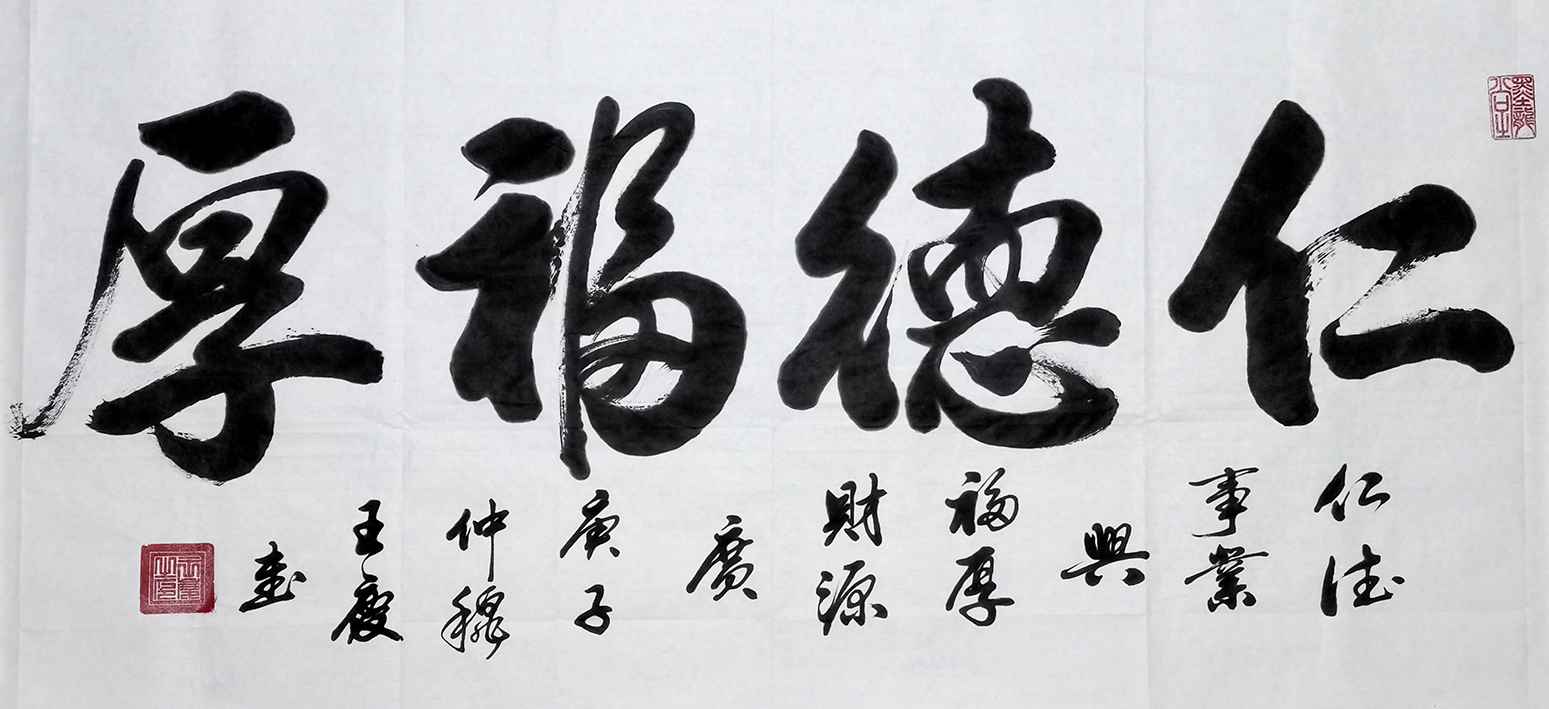 仁德福厚
仁德
事業
興
福厚
財源
廣
庚子
仲穆
王慶
書